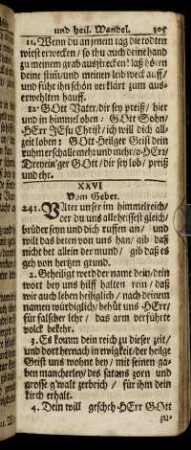 und heil. Wandel. 305
11. Wenn du an jenem tag die todten
wirst erwecken / so thu auch deine hand
zu meinem grab ausstrecken / laß hören
deine stim̃ / und meinen leib weck auff /
und führ ihn schön verklärt zum aus-
erwehlten hauff.
12. GOtt Vater / dir sey preiß / hier
und in himmel oben: GOtt Sohn /
HErr JEsu Christ / ich will dich all-
zeit loben: GOtt Heiliger Geist dein
ruhm erschalle mehr und mehr / o HErr /
Dreyein'ger GOtt / dir sey lob / preiß
und ehr.
XXVI
Vom Gebet.
241. VAter unser im himmelreich /
der du uns alle heissest gleich /
brüder seyn und dich ruffen an / und
wilt das beten von uns han / gib daß
nicht bet allein der mund / gib daß es
geh von hertzen grund.
2. Geheiligt werd der name dein / dein
wort bey uns hilff halten rein / daß
wir auch leben heiliglich / nach deinem
namen würdiglich / behüt uns HErr /
für falscher lehr / das arm verführte
volck bekehr.
3. Es komm dein reich zu dieser zeit /
und dort hernach in ewigkeit / der heilge
Geist uns wohne bey / mit seinen ga-
ben mancherley / des satans zorn und
grosse g'walt zerbrich / für ihm dein
kirch erhalt.
4. Dein will gescheh HErr GOtt
zu-